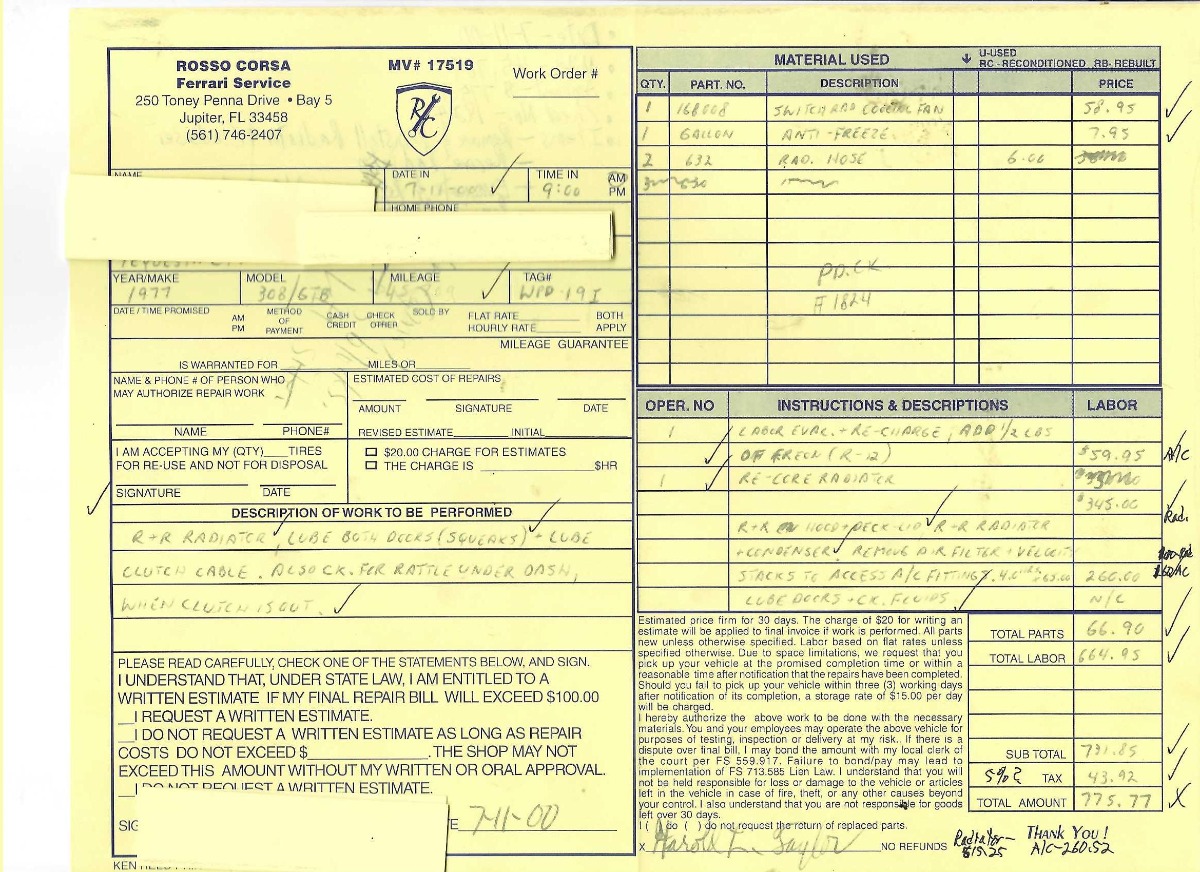 ROSSO CORSA
Ferrari Service
250 Toney Penna Drive • Bay 5
Jupiter, FL 33458
(561) 746-2407
MV# 17519
Work Order #
NAME
DATE IN
7-11-00
TIME IN
9:00
AM
PM
HOME PHONE
YEAR/MAKE
1977
MODEL
308/GTB
MILEAGE
TAG#
WPD-19I
DATE / TIME PROMISED
AM
PM
METHOD OF PAYMENT
CASH CHECK
CREDIT OTHER
SOLD BY
FLAT RATE
HOURLY RATE
BOTH
APPLY
MILEAGE GUARANTEE
IS WARRANTED FOR MILES OR
NAME & PHONE # OF PERSON WHO
MAY AUTHORIZE REPAIR WORK
NAME PHONE#
ESTIMATED COST OF REPAIRS
AMOUNT SIGNATURE DATE
REVISED ESTIMATE INITIAL
I AM ACCEPTING MY (QTY) TIRES
FOR RE-USE AND NOT FOR DISPOSAL
SIGNATURE DATE
$20.00 CHARGE FOR ESTIMATES
THE CHARGE IS $HR
DESCRIPTION OF WORK TO BE PERFORMED
R+R RADIATOR, LUBE BOTH DOORS (SQUEAKS) + LUBE
CLUTCH CABLE. ALSO CK. FOR RATTLE UNDER DASH,
WHEN CLUTCH IS OUT.
PLEASE READ CAREFULLY, CHECK ONE OF THE STATEMENTS BELOW, AND SIGN.
I UNDERSTAND THAT, UNDER STATE LAW, I AM ENTITLED TO A
WRITTEN ESTIMATE IF MY FINAL REPAIR BILL WILL EXCEED $100.00
__I REQUEST A WRITTEN ESTIMATE.
__I DO NOT REQUEST A WRITTEN ESTIMATE AS LONG AS REPAIR
COSTS DO NOT EXCEED $ .THE SHOP MAY NOT
EXCEED THIS AMOUNT WITHOUT MY WRITTEN OR ORAL APPROVAL.
__I DO NOT REQUEST A WRITTEN ESTIMATE.
SIG
7-11-00
MATERIAL USED
U-USED
RC-RECONDITIONED RB-REBUILT
QTY. PART. NO. DESCRIPTION PRICE
1 168008 SWITCH RAD COOLING FAN 58.95
1 GALLON ANTI-FREEZE 7.95
2 632 RAD. HOSE 6.00
PD. CK
# 1824
OPER. NO INSTRUCTIONS & DESCRIPTIONS LABOR
1 LABOR EVAL. + RE-CHARGE, ADD 1/2 LBS
OF FREON (R-12) $59.95 A/C
1 RE-CORE RADIATOR
$345.00 Rad.
R+R HOOD + DECK-LID R+R RADIATOR
+ CONDENSER REMOVE AIR FILTER + VELOCITY
STACKS TO ACCESS A/C FITTINGS. 4.0 HRS 65.00 260.00
LUBE DOORS + CK. FLUIDS N/C
Estimated price firm for 30 days. The charge of $20 for writing an
estimate will be applied to final invoice if work is performed. All parts
new unless otherwise specified. Labor based on flat rates unless
specified otherwise. Due to space limitations, we request that you
pick up your vehicle at the promised completion time or within a
reasonable time after notification that the repairs have been completed.
Should you fail to pick up your vehicle within three (3) working days
after notification of its completion, a storage rate of $15.00 per day
will be charged.
I hereby authorize the above work to be done with the necessary
materials. You and your employees may operate the above vehicle for
purposes of testing, inspection or delivery at my risk. If there is a
dispute over final bill, I may bond the amount with my local clerk of
the court per FS 559.917. Failure to bond/pay may lead to
implementation of FS 713.585 Lien Law. I understand that you will
not be held responsible for loss or damage to the vehicle or articles
left in the vehicle in case of fire, theft, or any other causes beyond
your control. I also understand that you are not responsible for goods
left over 30 days.
I ( ) do ( ) do not request the return of replaced parts.
X Harold L. Taylor NO REFUNDS
TOTAL PARTS 66.90
TOTAL LABOR 664.95
SUB TOTAL 731.85
TAX 43.92
TOTAL AMOUNT 775.77
Radiator-
515.25
THANK YOU!
A/C-260.52